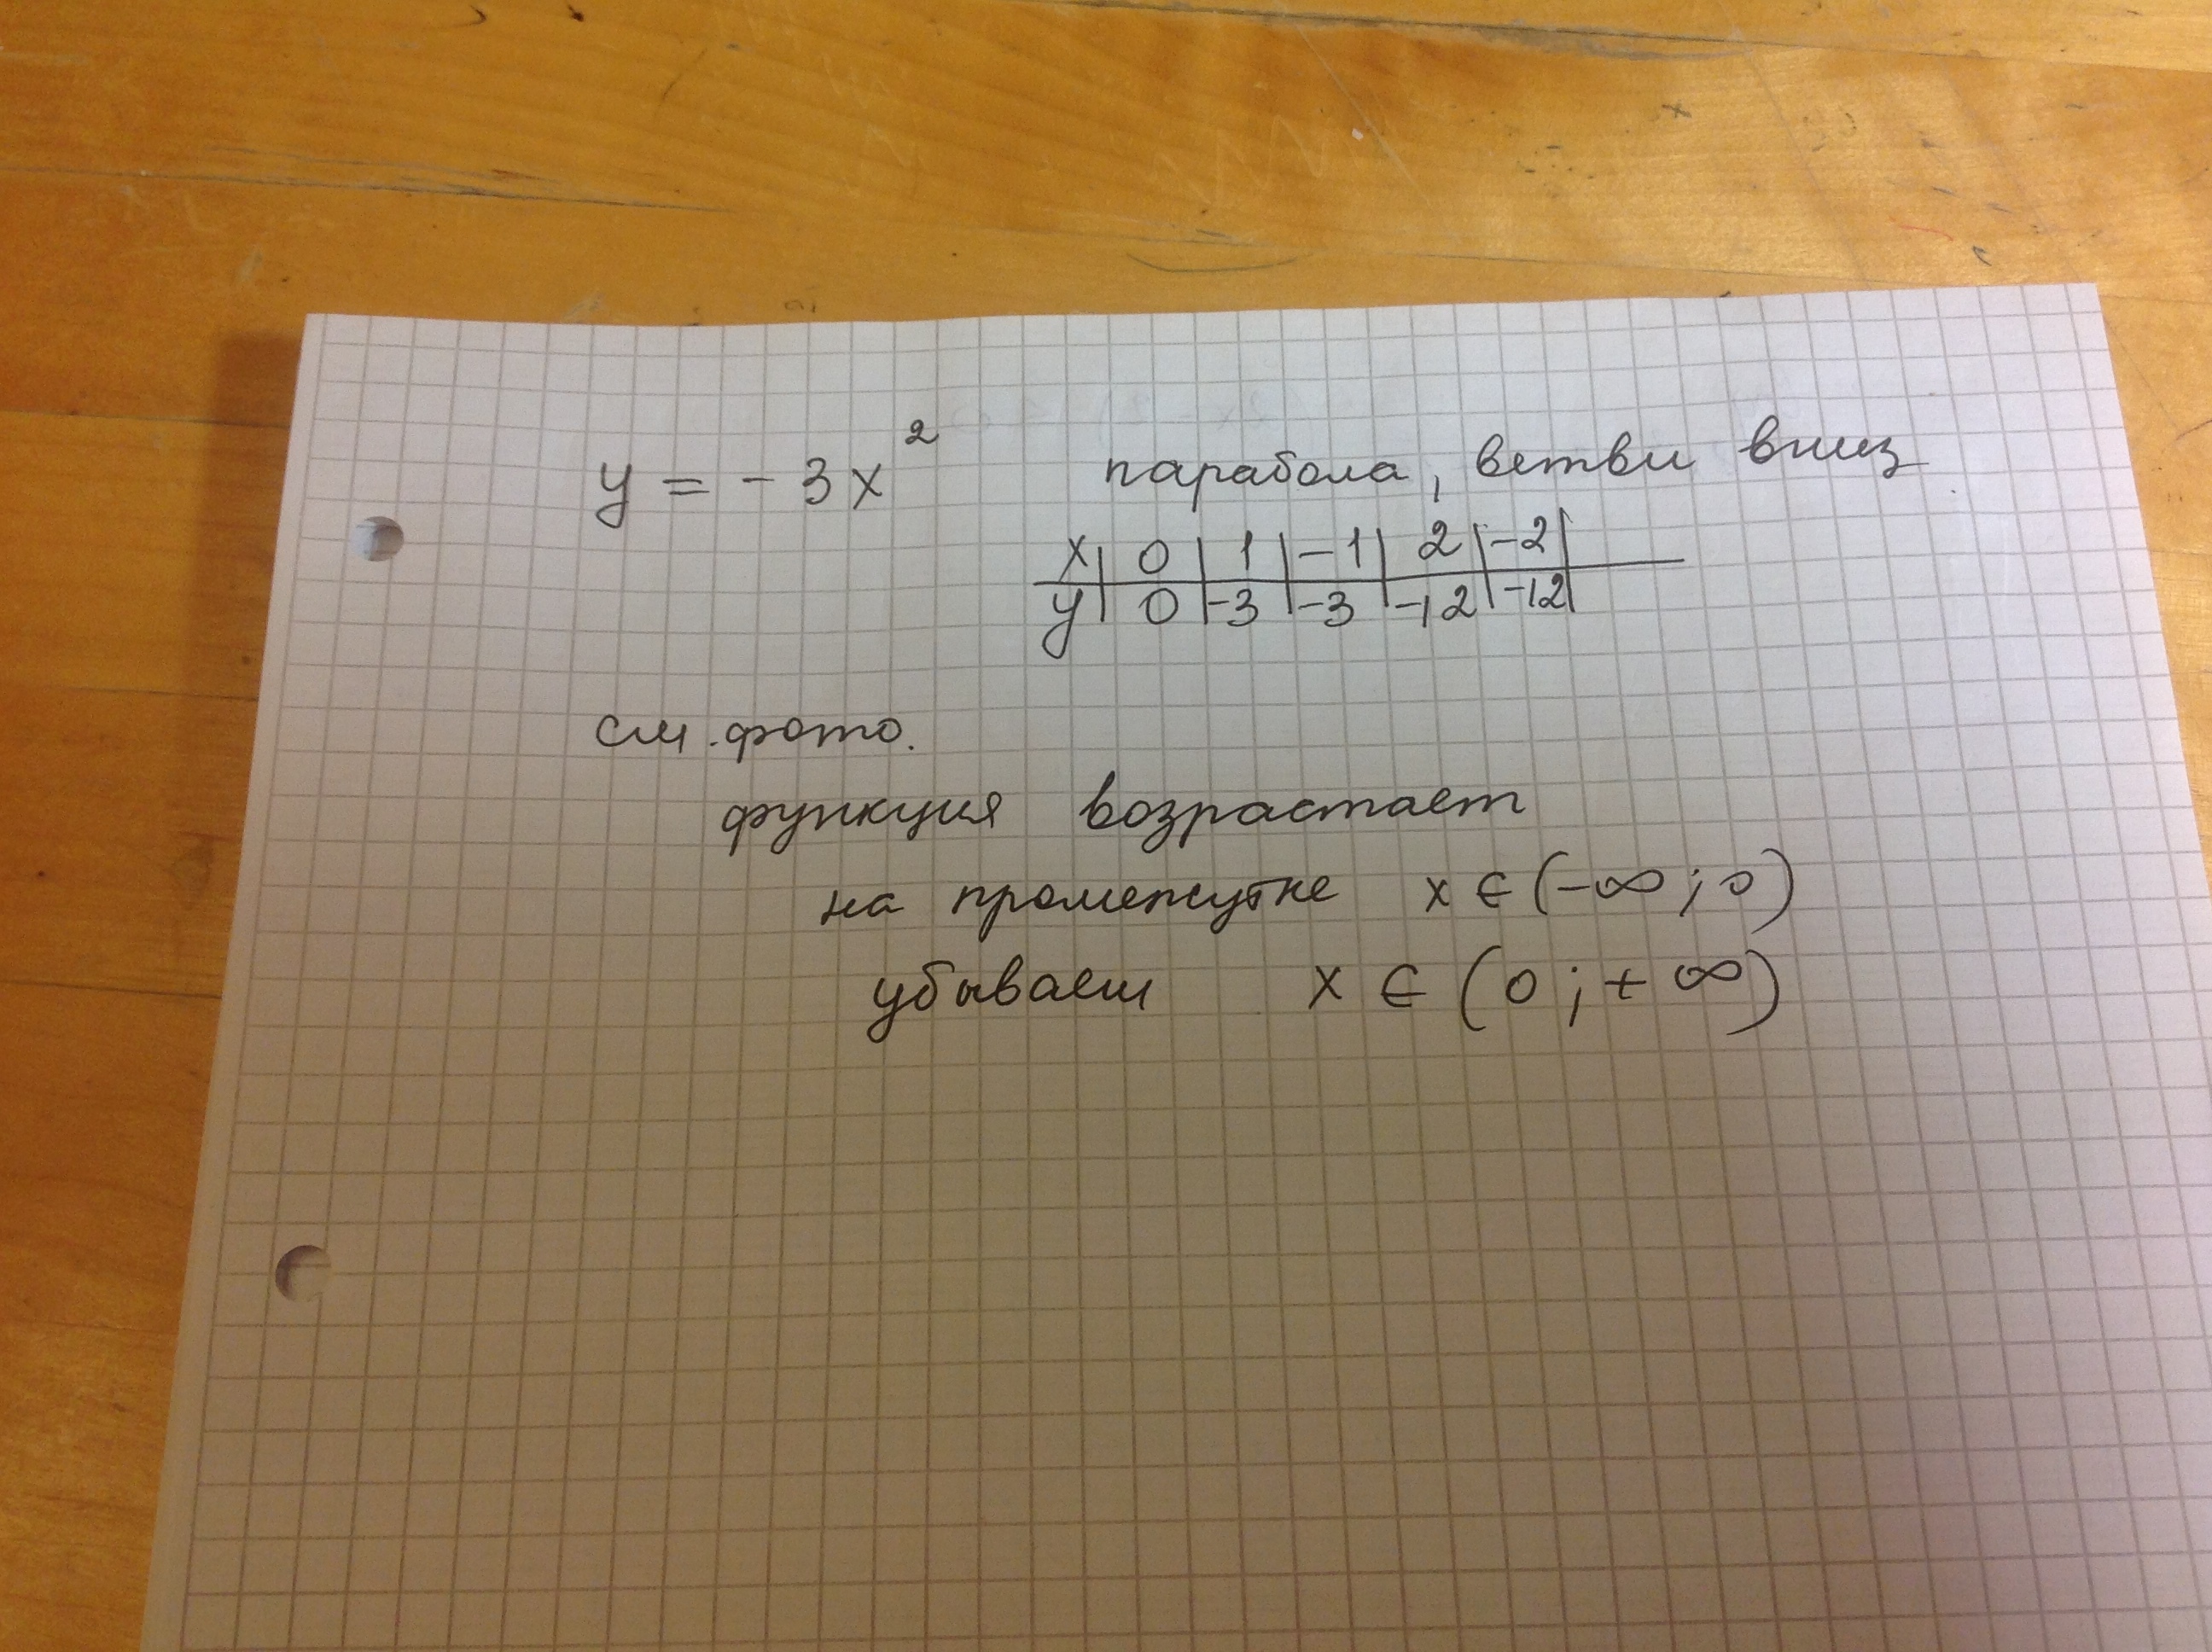 y = - 3x² парабола, ветви вниз
x | 0 | 1 | -1 | 2 | -2 |
y | 0 | -3 | -3 | -12 | -12 |
см. фото.
функция возрастает
на промежутке x ∈ (-∞ ; 0)
убывает x ∈ (0 ; + ∞)